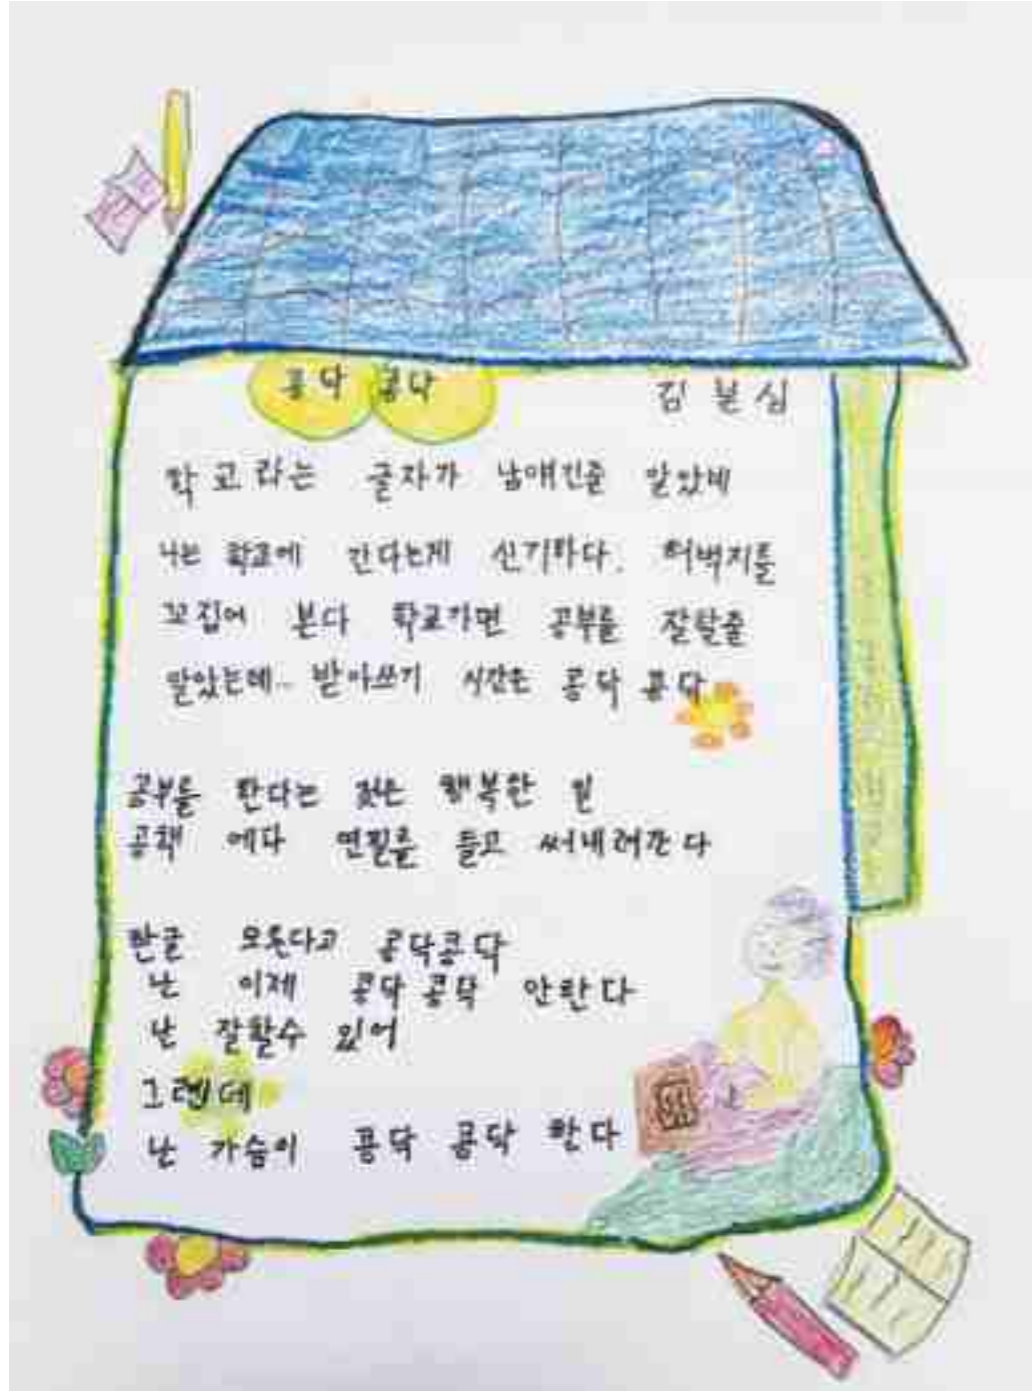 콩닥 콩닥
김분심
학교라는 글자가 남애긴줄 알았네
나는 학교에 간다는게 신기하다. 허벅지를
꼬집어 본다 학교가면 공부를 잘할줄
알았는데... 받아쓰기 시간은 콩닥 콩닥
공부를 한다는 것은 행복한 일
공책 에다 연필을 들고 써내려간다
한글 모른다고 콩닥콩닥
난 이제 콩닥 콩닥 안한다
난 잘할수 있어
그런데
난 가슴이 콩닥 콩닥 한다